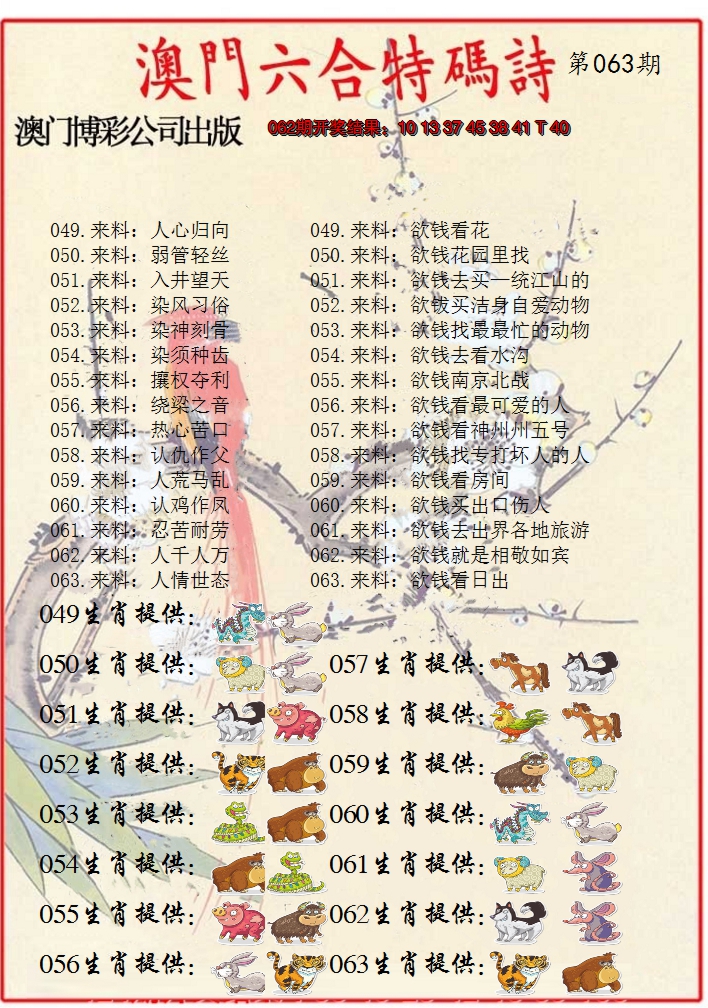 澳門六合特碼詩 第063期
澳门博彩公司出版 062期开奖结果：10 13 37 45 38 41 T 40
049.来料：人心归向 049.来料：欲钱看花
050.来料：弱管轻丝 050.来料：欲钱花园里找
051.来料：入井望天 051.来料：欲钱去买一统江山的
052.来料：染风习俗 052.来料：欲钱买洁身自爱动物
053.来料：染神刻骨 053.来料：欲钱找最最忙的动物
054.来料：染须种齿 054.来料：欲钱去看水沟
055.来料：攘权夺利 055.来料：欲钱南京北战
056.来料：绕梁之音 056.来料：欲钱看最可爱的人
057.来料：热心苦口 057.来料：欲钱看神州州五号
058.来料：认仇作父 058.来料：欲钱找专打坏人的人
059.来料：人荒马乱 059.来料：欲钱看房间
060.来料：认鸡作凤 060.来料：欲钱买出口伤人
061.来料：忍苦耐劳 061.来料：欲钱去出界各地旅游
062.来料：人千人万 062.来料：欲钱就是相敬如宾
063.来料：人情世态 063.来料：欲钱看日出
049生肖提供：
050生肖提供： 057生肖提供：
051生肖提供： 058生肖提供：
052生肖提供： 059生肖提供：
053生肖提供： 060生肖提供：
054生肖提供： 061生肖提供：
055生肖提供： 062生肖提供：
056生肖提供： 063生肖提供：